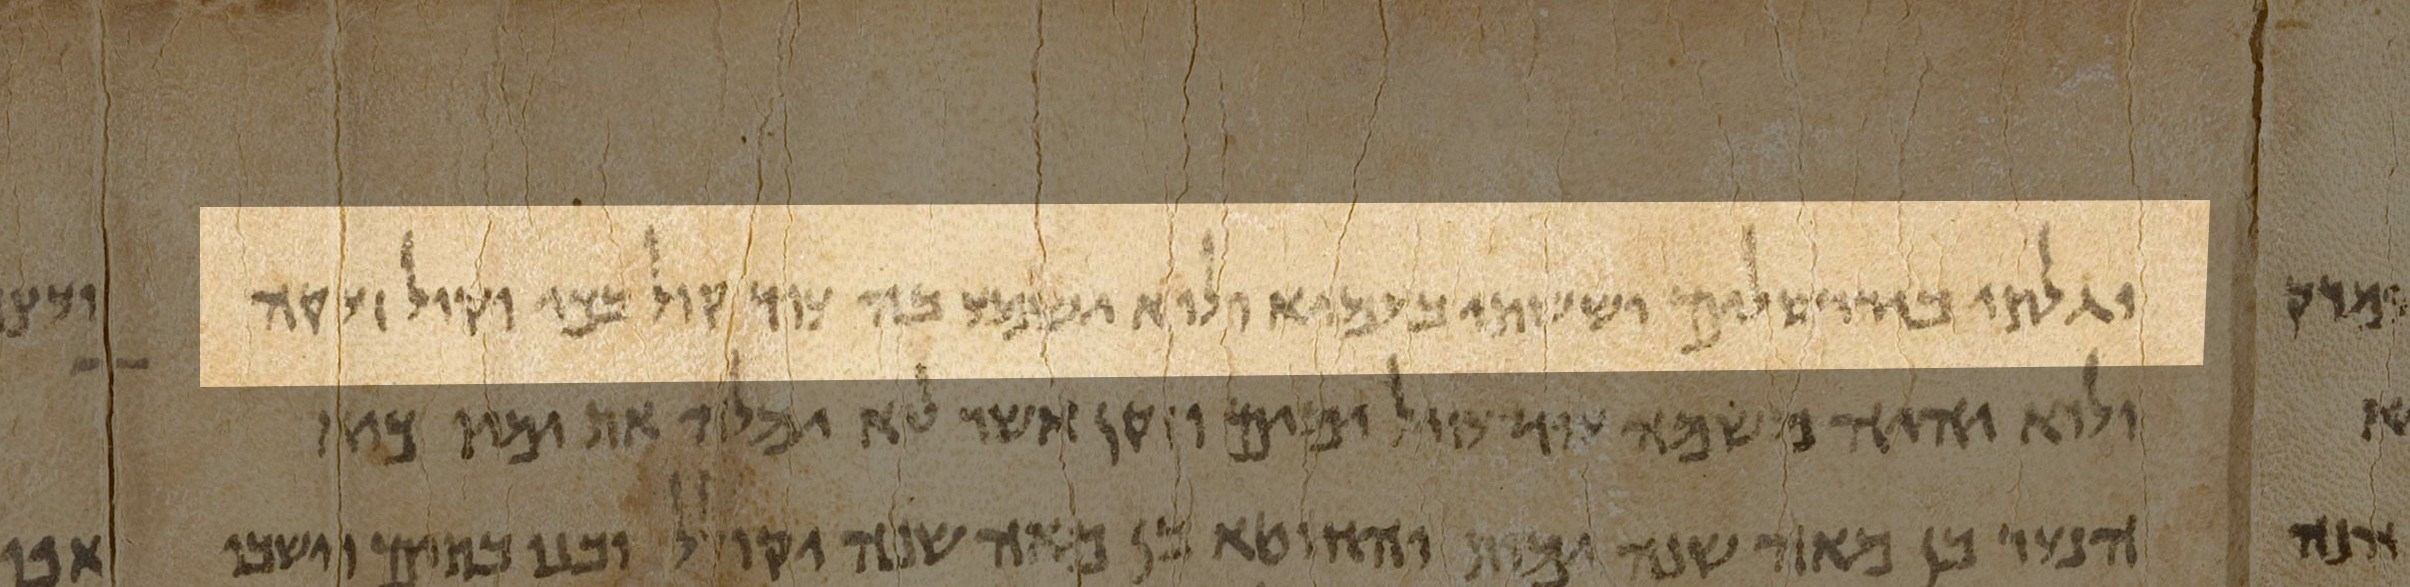 וגלתי בירושלים וששתי בעמיא ולוא ישמע בה עוד קול בכי וקול זעקה
ולוא יהיה משמה עוד עול ימים וזקן אשר לא ימלא את ימיו כיא
הנער בן מאה שנה ימות והחוטא בן מאה שנה יקולל ובנו בתים וישבו